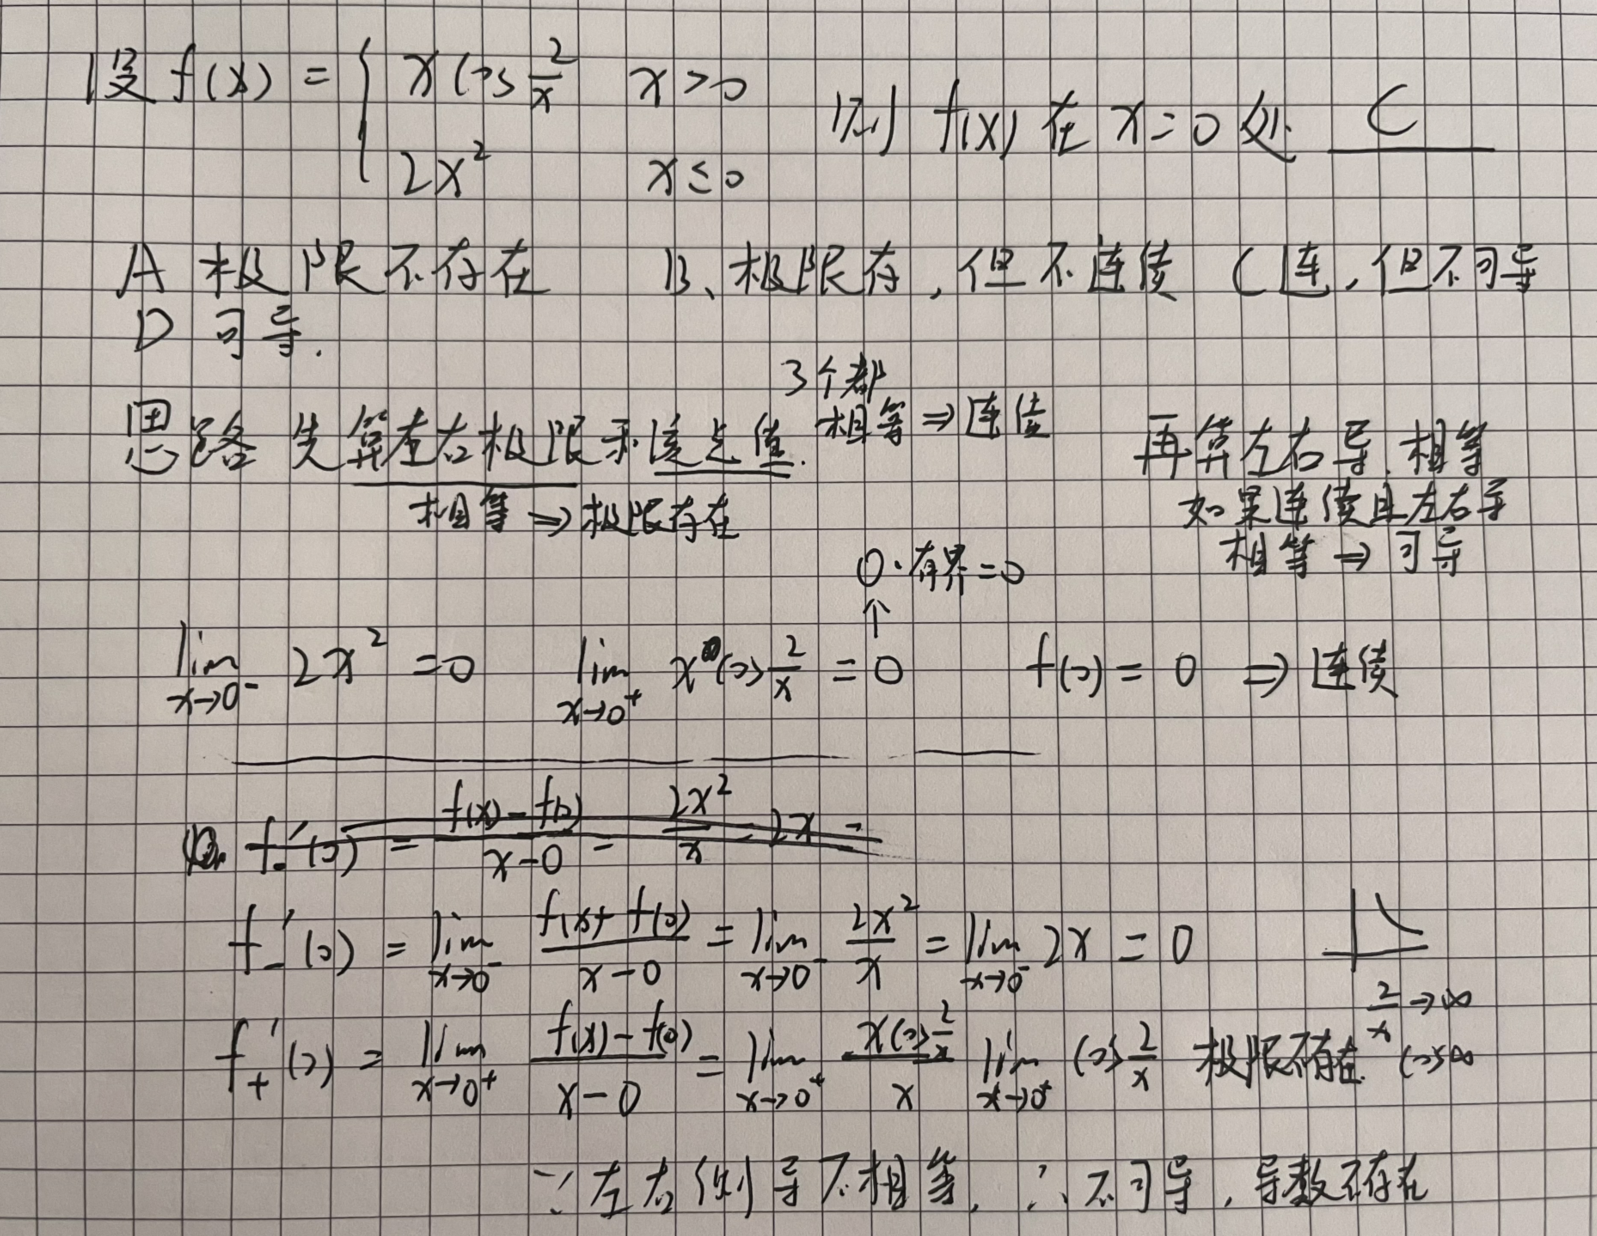 设 f(x) = { x cos 2/x   x>0
2x²   x≤0
则 f(x) 在 x=0 处 C
A 极限不存在   B、极限存,但不连续   C 连,但不可导
D 可导.
思路 先算左右极限和该点值.
相等 ⇒ 极限存在
3个都
相等 ⇒ 连续
再算左右导.相等
如果连续且左右导
相等 ⇒ 可导
0·有界=0
↑
lim x→0⁻ 2x² = 0   lim x→0⁺ x cos 2/x = 0   f(0) = 0 ⇒ 连续
f₋′(0) = (f(x)-f(0))/(x-0) = 2x²/x = 2x =
f₋′(0) = lim x→0⁻ (f(x)+f(0))/(x-0) = lim x→0⁻ 2x²/x = lim x→0⁻ 2x = 0
f₊′(0) = lim x→0⁺ (f(x)-f(0))/(x-0) = lim x→0⁺ (x cos 2/x)/x lim x→0⁺ cos 2/x 极限不存在.
2/x → ∞
cos∞
∵ 左右侧导不相等, ∴ 不可导, 导数不存在